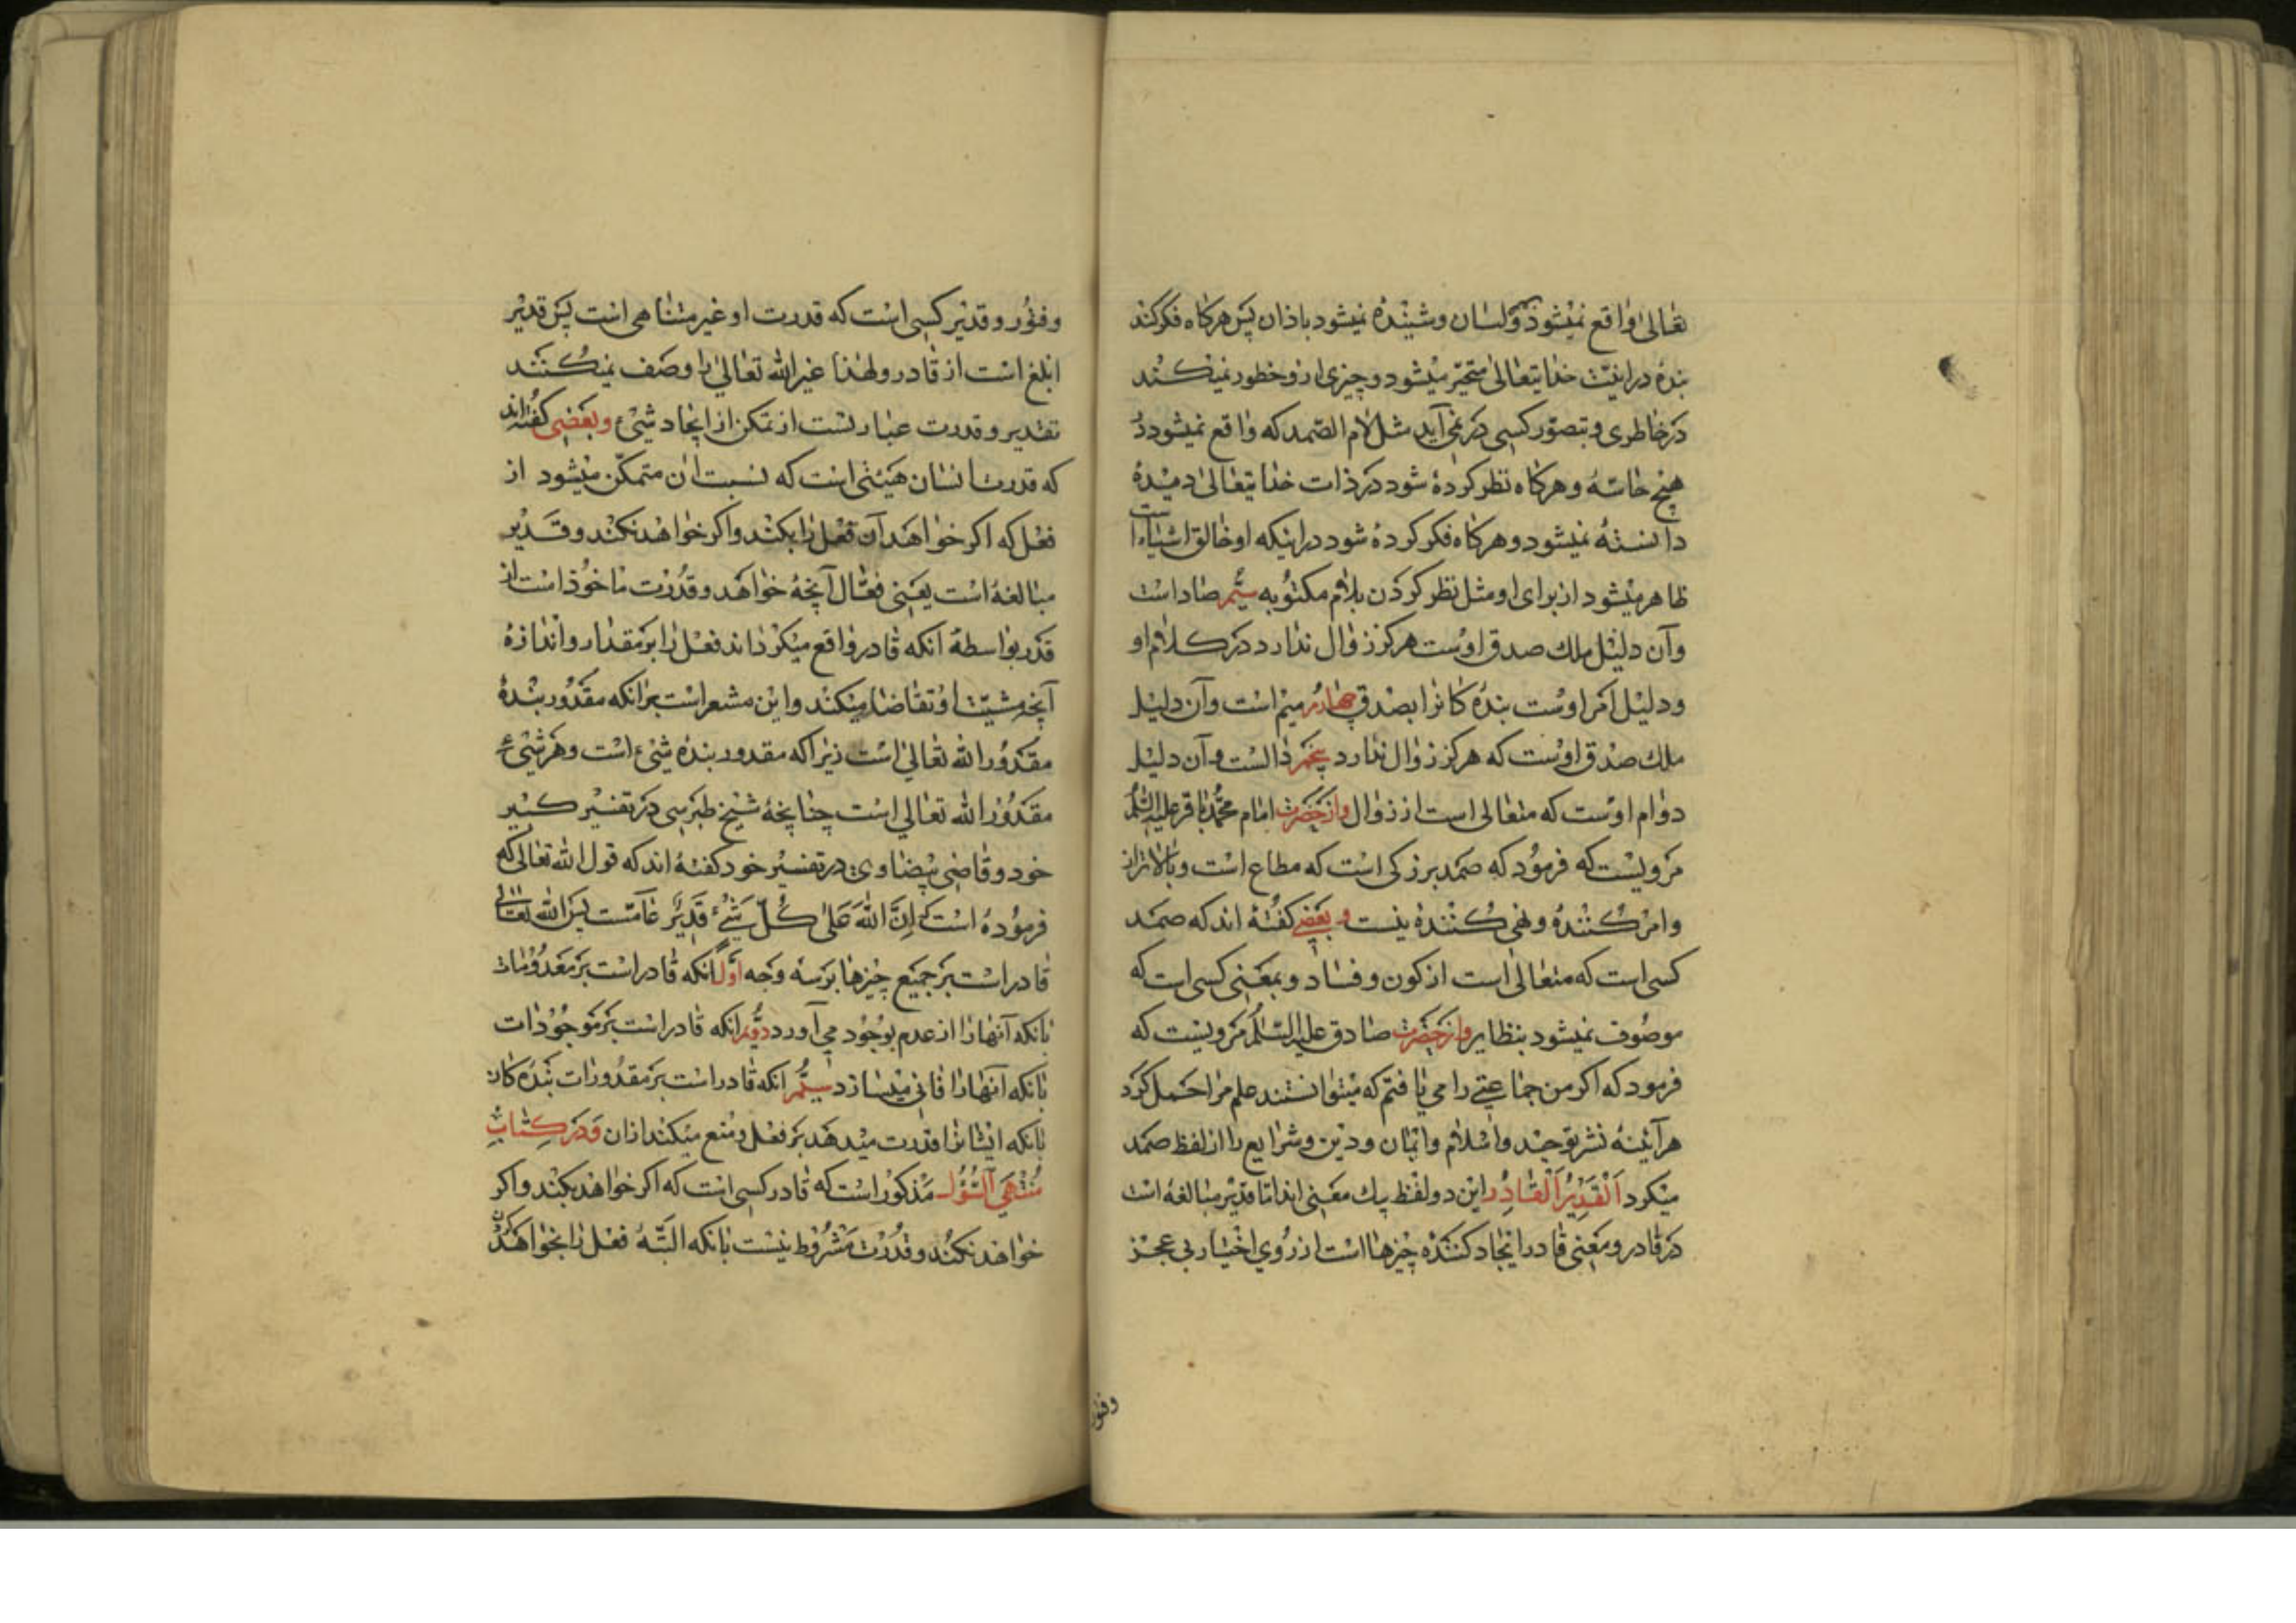 تعالی واقع نمیشود و لسان و شنیده نمیشود باذان پس هرکاه فکر کند
بنده در اینت خدایتعالی متحیر میشود و چیزی ازو خطور نمیکند
در خاطری و بتصور کسی در نمی آید مثل لام الصمد که واقع نمیشود در
هیچ حاسه و هرکاه نظر کرده شود در ذات خدایتعالی دمیده
دانسته نمیشود و هرکاه فکر کرده شود در اینکه او خالق اشیا است
ظاهر میشود از برای او مثل نظر کردن بلام مکتوبه سیم صاد است
وآن دلیل ملک صدق اوست هرکز زوال ندارد در کلام او
و دلیل امر اوست بنده کانرا بصدق چهارم میم است وآن دلیل
ملک صدق اوست که هرکز زوال ندارد پنجم دالست وآن دلیل
دوام اوست که متعالی است از زوال و از حضرت امام محمد باقر علیه السلم
مرویست که فرمود که صمد بزرکی است که مطاع است و بالاتر از
و امر کننده و نهی کننده نیست و بعضی کفته اند که صمد
کسی است که متعالی است از کون و فساد و بمعنی کسی است که
موصوف نمیشود بنظایر و از حضرت صادق علیه السلم مرویست که
فرمود که اکر من جماعتی را می یافتم که میتوانستند علم مرا حمل کرد
هرآینه نشر توحید و اسلام و ایمان و دین و شرایع را از لفظ صمد
میکرد اَلْقَدِیرُ اَلْقادِرُ این دو لفظ بیک معنی اند اما قدیر مبالغه است
در قادر و معنی قادر ایجاد کننده چیزها است از روی اختیار بی عجز
وفتور
وفتور و قدیر کسی است که قدرت او غیر متناهی است پس قدیر
ابلغ است از قادر و لهذا غیر الله تعالی را وصف نمیکنند
تقدیر و قدرت عبارتست از تمکن از ایجاد شیء و بعضی کفته اند
که قدرت انسان هیئتی است که نسبت آن متمکن میشود از
فعل که اکر خواهد آن فعل را بکند و اکر خواهد نکند و قدیر
مبالغه است یعنی فعال آنچه خواهد و قدرت ماخوذ است از
قدر بواسطه آنکه قادر واقع میکرداند فعل را بر مقدار و اندازه
آنچه مشیت او تقاضا میکند و این مشعر است بر آنکه مقدور بنده
مقدور الله تعالی است زیرا که مقدور بنده شیء است و هر شیء
مقدور الله تعالی است چنانچه شیخ طبرسی در تفسیر کبیر
خود و قاضی بیضاوی در تفسیر خود کفته اند که قول الله تعالی که
فرموده است که اِنَّ اللهَ عَلی کُلِّ شَیْءٍ قَدِیرٌ عامست پس الله تعالی
قادر است بر جمیع چیزها بر سه وجه اول آنکه قادر است بر معدومات
بانکه آنها را از عدم بوجود می آورد دویم آنکه قادر است بر موجودات
بانکه آنها را فانی میسازد سیم آنکه قادر است بر مقدورات بنده کان
بانکه ایشانرا قدرت میدهد بر فعل و منع میکند ازان و در کتاب
منتهی السؤل مذکور است که قادر کسی است که اکر خواهد بکند و اکر
خواهد نکند و قدرت مشروط نیست بانکه البته فعل را بخواهد